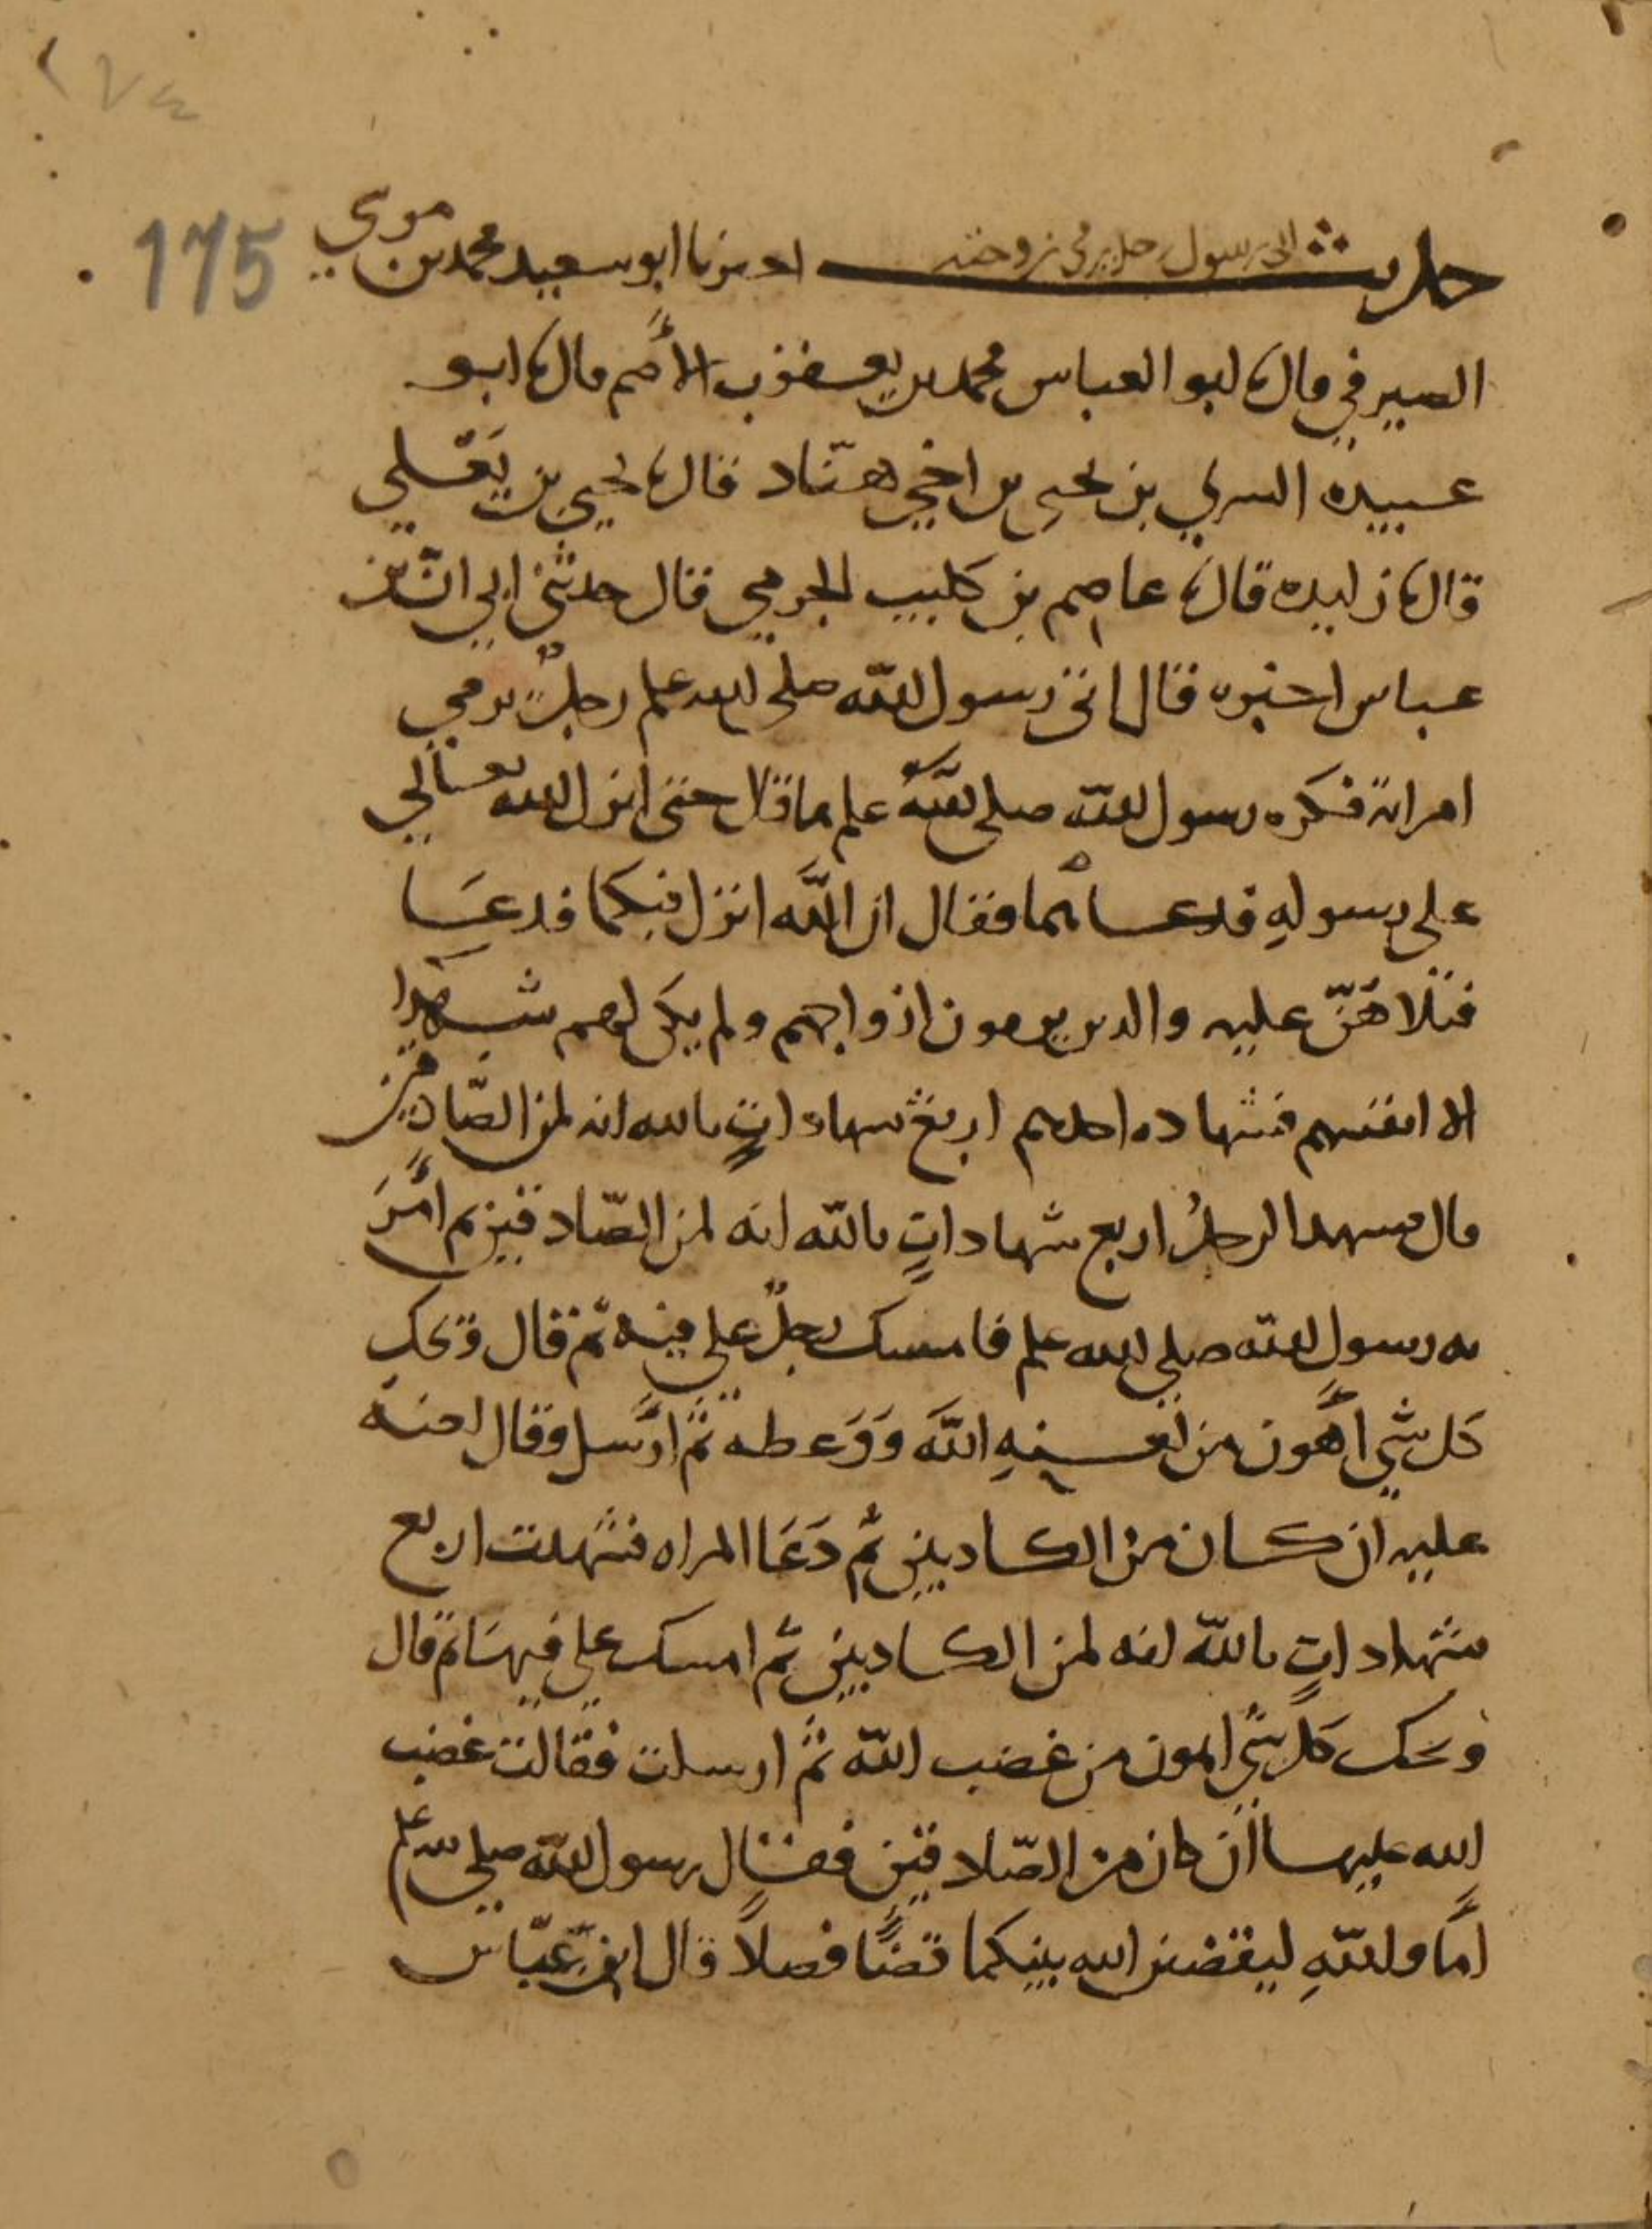 ١٧٤
175
حديث اتى رسول رجل يرمي زوجته اخبرنا ابو سعيد محمد بن موسى
الصيرفي قال ثنا ابو العباس محمد بن يعقوب الأصم قال ثنا ابو
عبيده السري بن يحيى بن اخي هنّاد قال ثنا يحيى بن يَعْلي
قال ثنا زايده قال ثنا عاصم بن كليب الجرمي قال حدثني ابي انّ ابن
عباس اخبره قال اتى رسول الله صلى الله علم رجلٌ يرمي
امراته فكره رسول الله صلى اللهُ علم ما قال حتى انزل الله تعالى
على رسولهِ فدعاهما فقال ان اللَّه انزل فيكما فدعَا
فتلاهَنّ عليه والدين يرمون ازواجهم ولم يكن لهم شهدا
الا انفسهم فشهاده احدهم اربعُ شهاداتٍ بالله انه لمن الصّادقين
قال فشهد الرجلُ اربع شهاداتٍ بالله انه لمن الصّادقين ثم أمَرَ
به رسول الله صلى الله علم فامسك رجلٌ على فيه ثمّ قال ويحك
كل شي أهْون من لعنةِ اللَّه وَوَعظه ثمّ ارْسل وقال لعنة
عليه ان كان من الكاذبين ثُم دَعَا المراه فشهدت اربع
شهاداتٍ بالله انه لمن الكاذبين ثُم امسك على فيها ثم قال
ويحك كل شي اهون من غضب الله ثمّ ارسلت فقالت غضب
الله عليها ان كان من الصّادقين فقال رسول الله صلى الله علم
امَا واللهِ ليقضين الله بينكما قضًا فصلاً قال ابن عبّاس